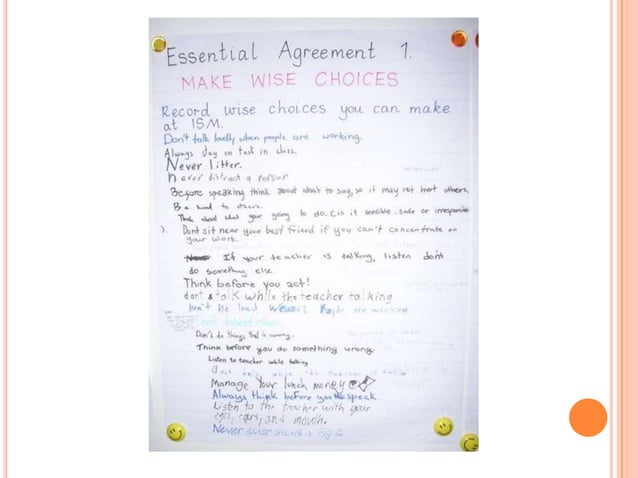 Essential Agreement 1.
MAKE WISE CHOICES
Record wise choices you can make
at ISM.
Don't talk loudly when people are working.
Always stay on task in class.
Never litter.
never distract a person
Before speaking think about what to say, so it may not hert others.
Be kind to others.
Think about what your going to do. Is it sensible. safe or irresponsible
). Dont sit near your best friend if you can't concentrate on
your work.
If your teacher is talking, listen don't
do something else
Think before you act!
don't talk while the teacher talking
Don't be loud people are working
Don't others.
Don't do things that is wrong.
Think before you do something wrong.
Listen to teacher while talking
while the teacher is
Manage Your lunch money
Always think before you speak
Listen to the teacher with your
ears, and mouth.
Never ever start a fight